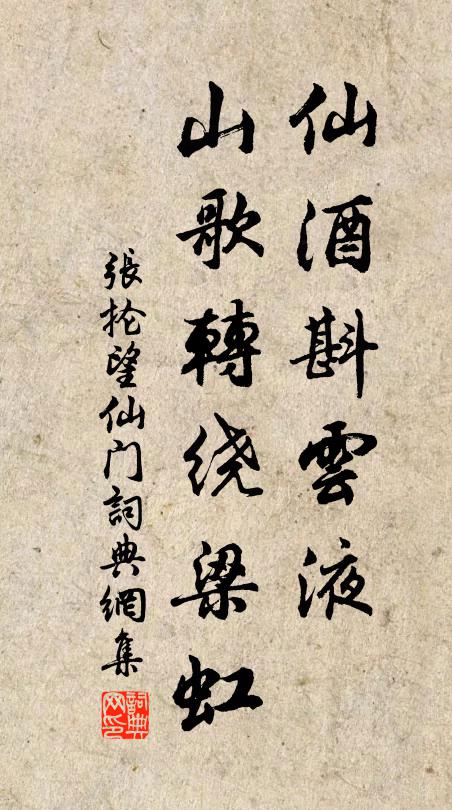 仙酒斟雲液
山歌轉绕梁虹
張抡望仙门詞典網集
詞典网印